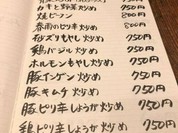 カキと野菜炒め 750円
焼ビーフン 800円
春雨のピリ辛炒め 800円
砂ズリもやし炒め 750円
鶏バジル炒め 750円
ホルモンもやし炒め 750円
豚インゲン炒め 750円
豚キムチ炒め 750円
豚ピリ辛しょうが炒め 750円
鶏ピリ辛しょうが炒め 750円